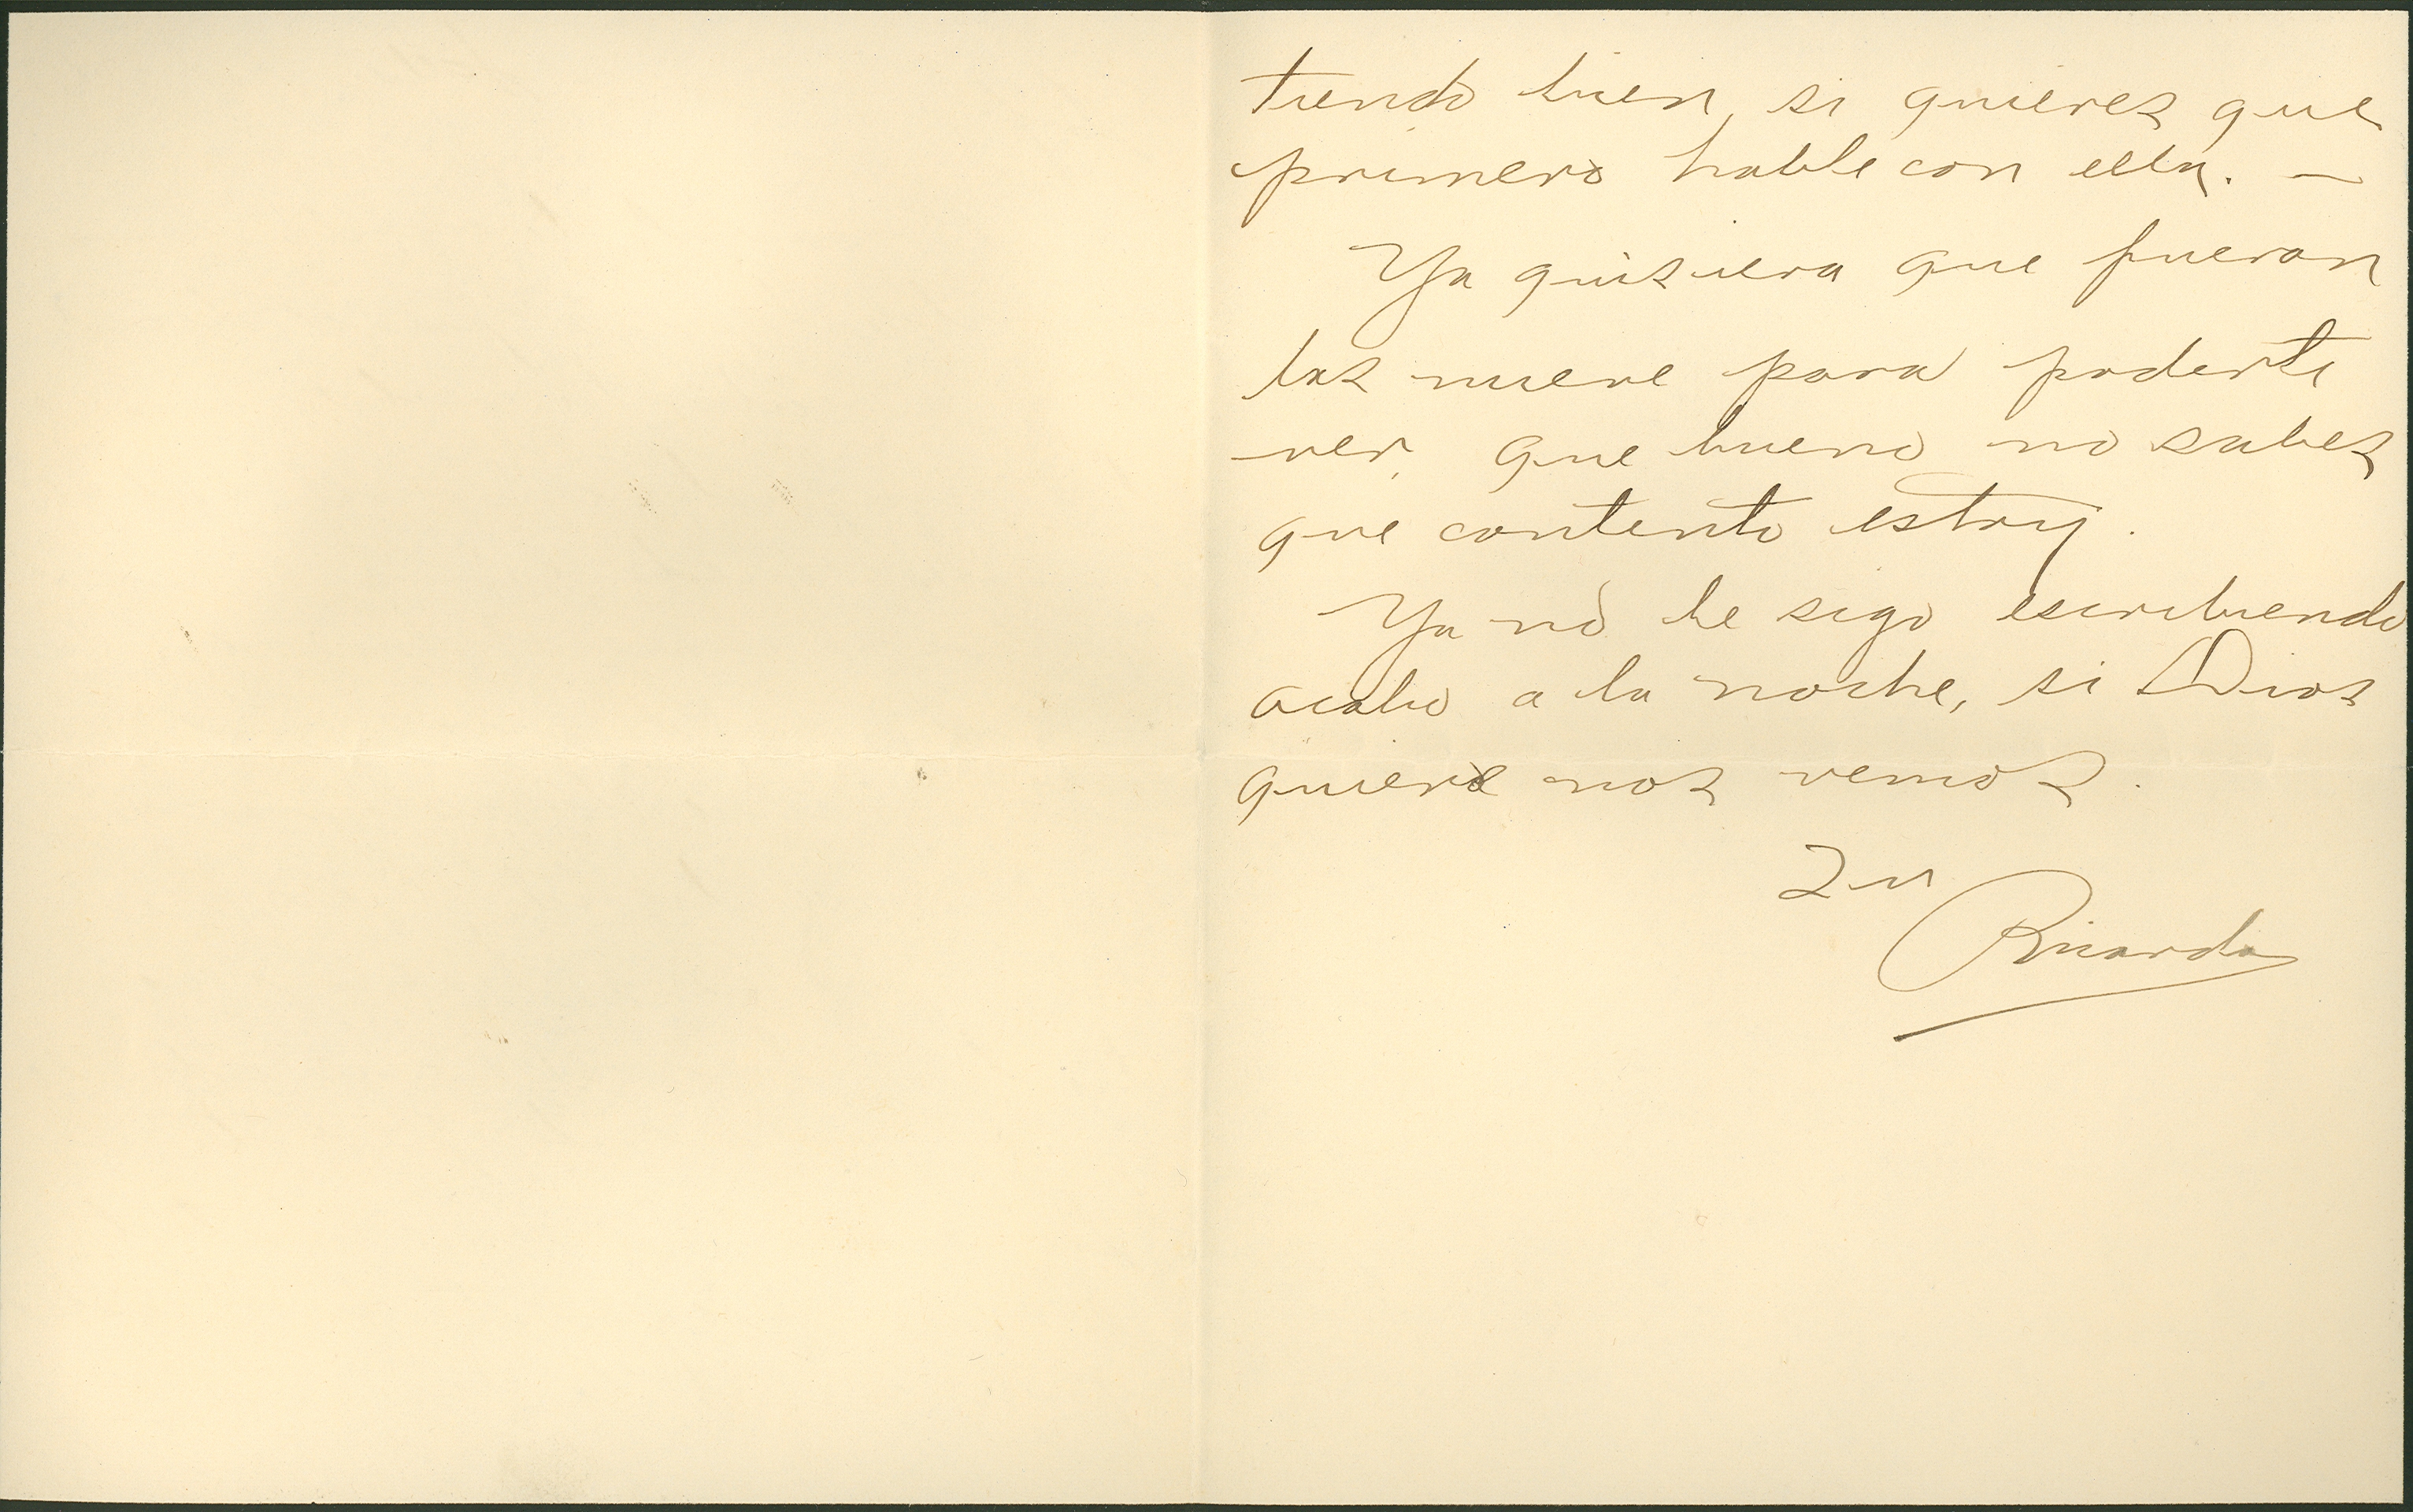 tiendo bien, si quieres que
primero hable con ella. —
Ya quisiera que fueran
las nueve para poderte
ver, que bueno no sabes
que contento estoy.
Ya no le sigo escribiendo
acabo a la noche, si Dios
quiere nos vemos.
Ricardo